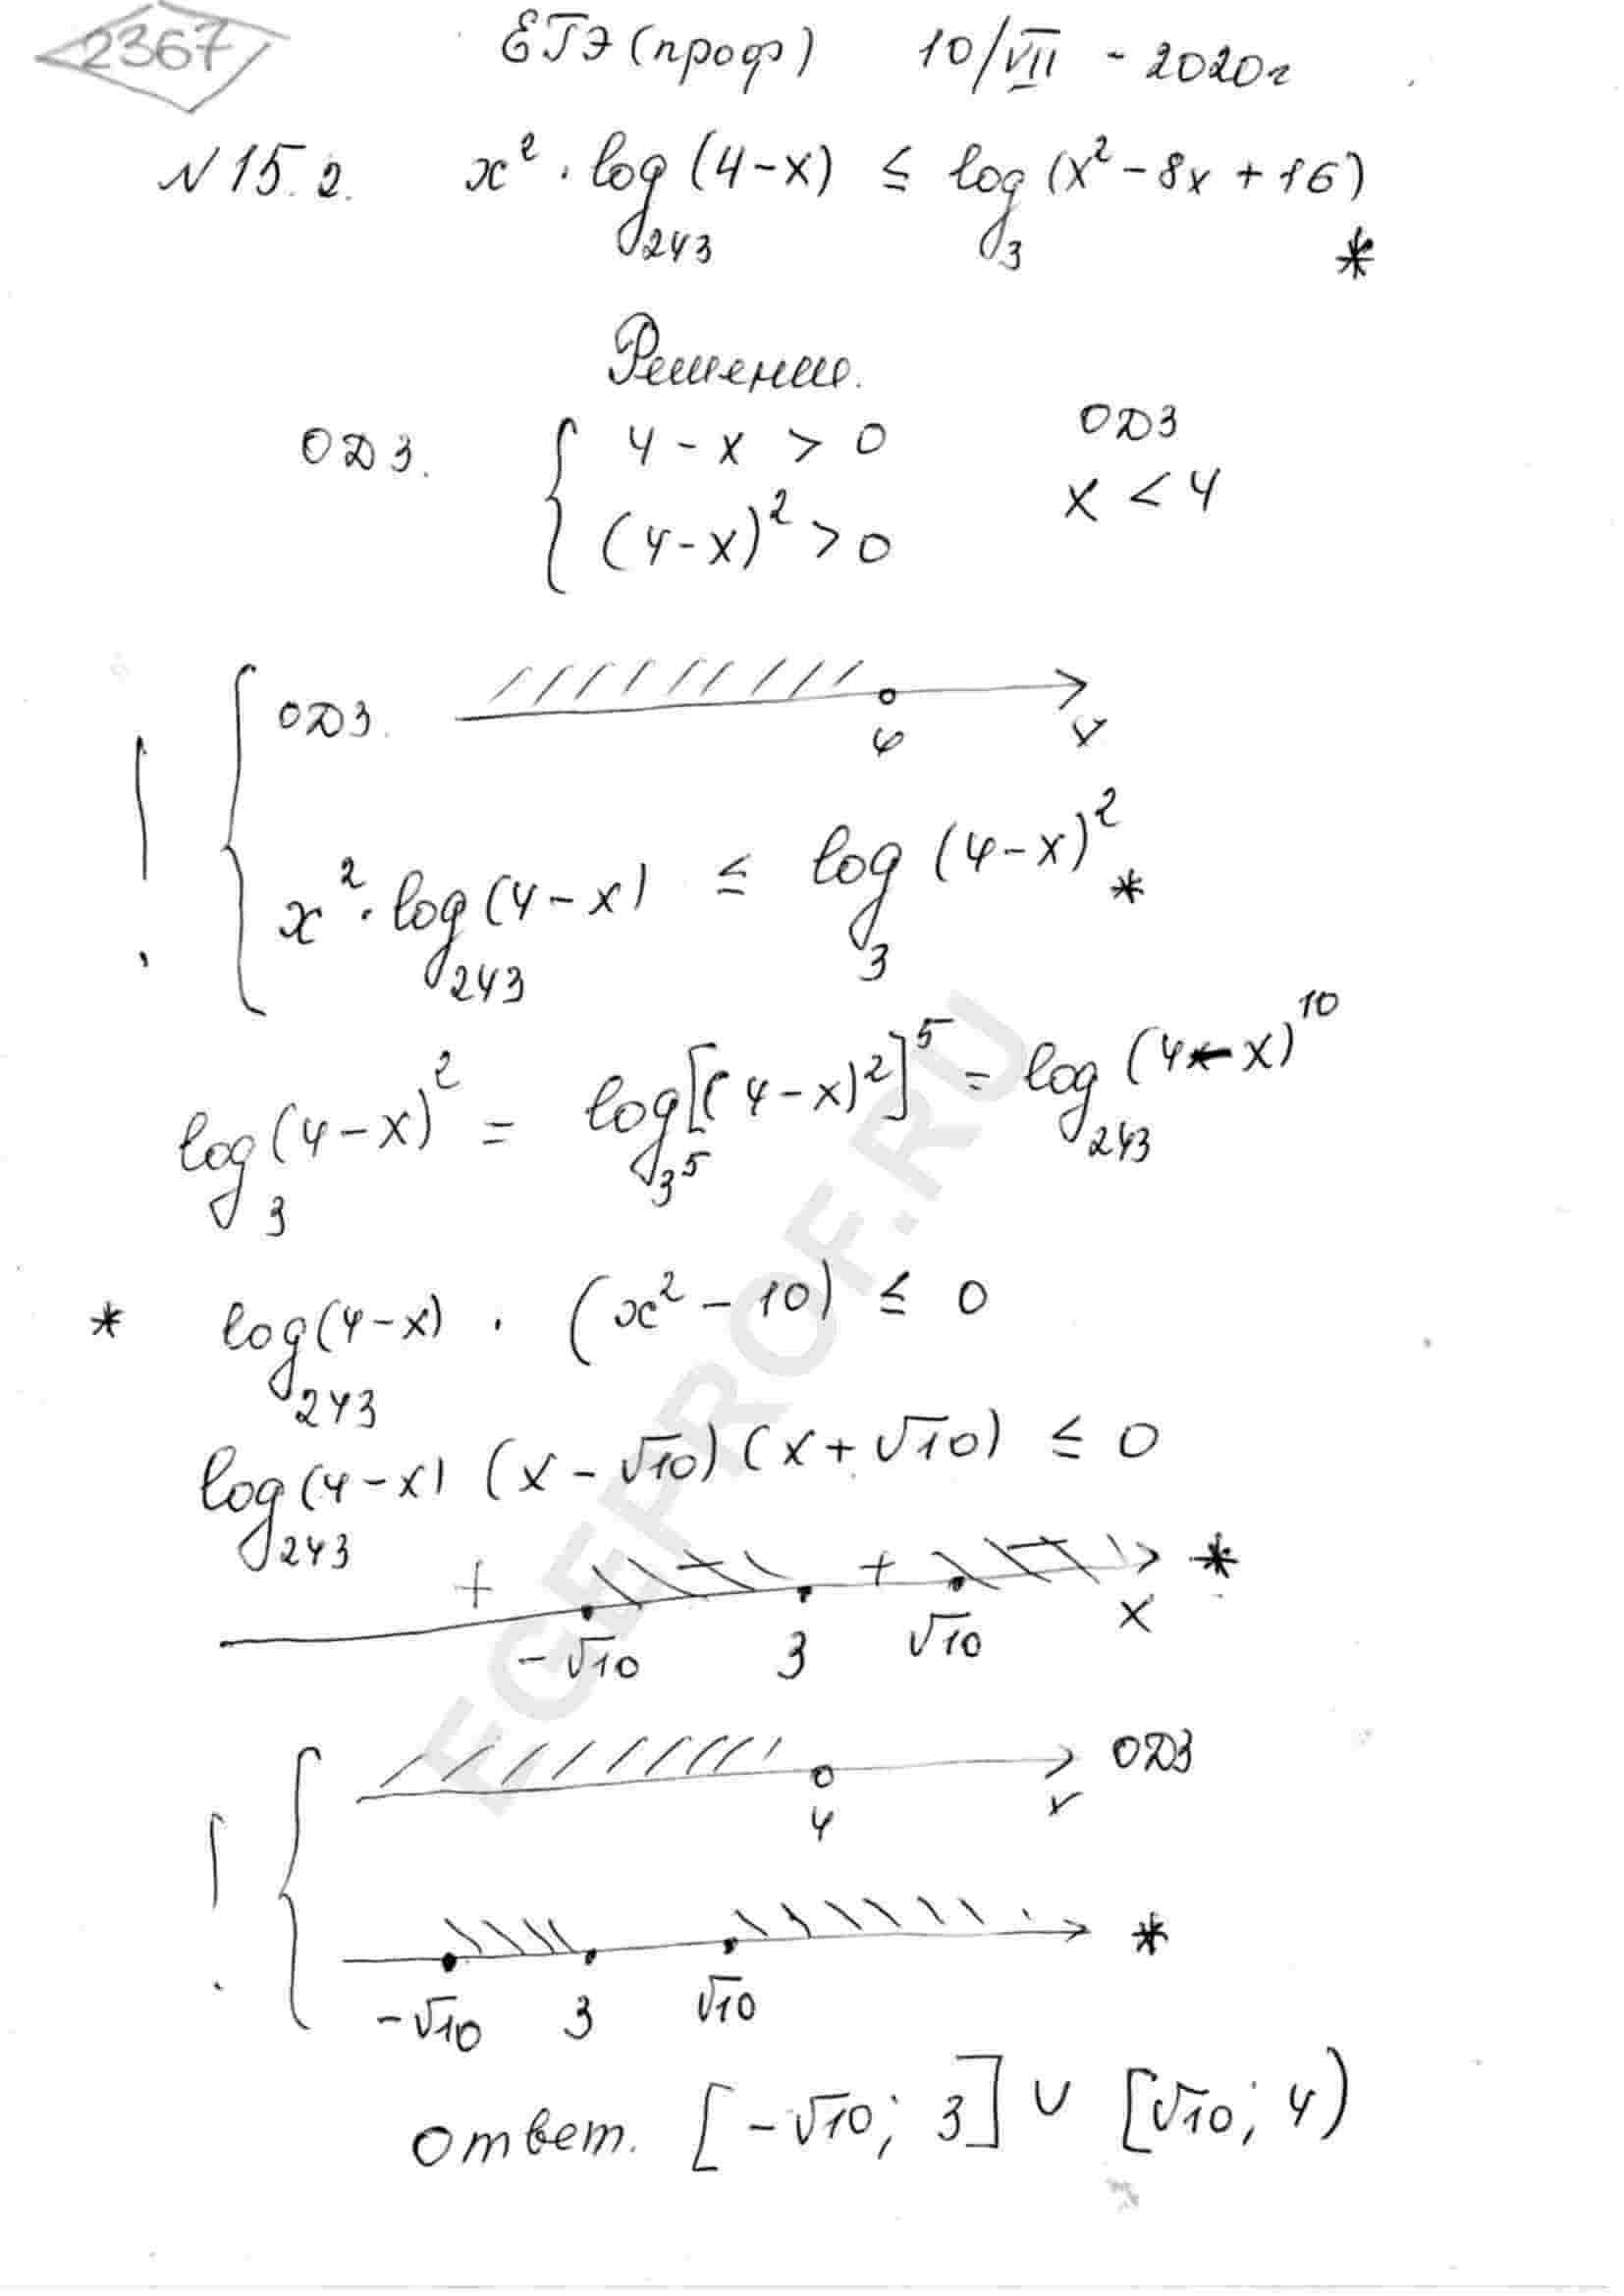 2367
ЕГЭ (проф) 10/VII - 2020г
N 15.2. x² · log₂₄₃(4-x) ≤ log₃(x² - 8x + 16) *
Решение.
ОДЗ. { 4 - x > 0
(4-x)² > 0
ОДЗ
x < 4
! { ОДЗ. 4 x
x² · log₂₄₃(4-x) ≤ log₃(4-x)² *
log₃(4-x)² = log₃⁵[(4-x)²]⁵ = log₂₄₃(4-x)¹⁰
* log₂₄₃(4-x) · (x² - 10) ≤ 0
log₂₄₃(4-x) (x - √10)(x + √10) ≤ 0
+ - + - *
-√10 3 √10 x
! { 4 x ОДЗ
-√10 3 √10 *
Ответ. [-√10; 3] ∪ [√10; 4)
EGEPROF.RU